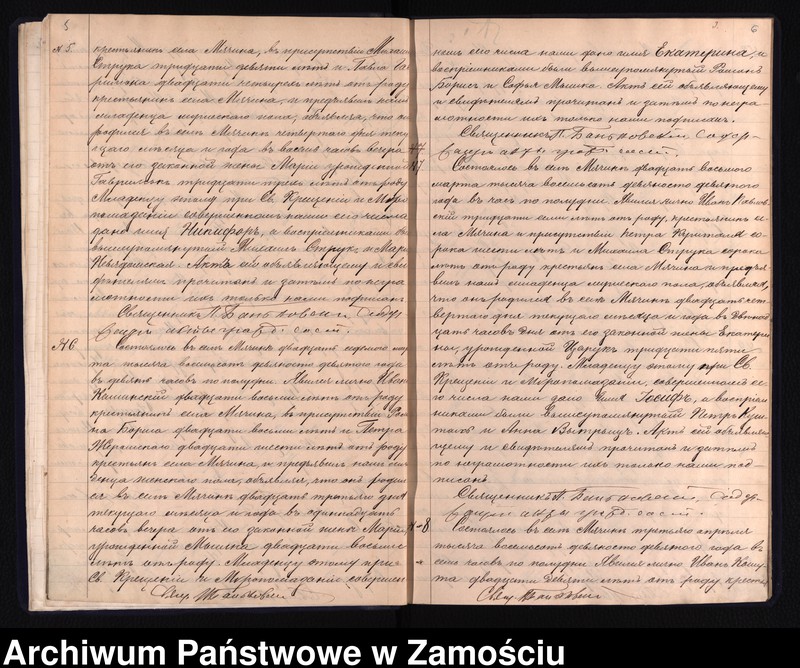 5
№ 5. крестьянин села Мячина, въ присутствіи
Струка тридцати девяти лѣтъ и
двадцати четырехъ лѣтъ отъ роду
крестьянъ села Мячина, и предъявилъ намъ
младенца мужескаго пола, объявляя, что онъ
родился въ селѣ Мячинѣ четвертаго дня теку
щаго мѣсяца и года въ восемь часовъ вечера
отъ его законной жены Маріи урожденной
Гаврилюкъ тридцати трехъ лѣтъ отъ роду
Младенцу этому при Св. Крещеніи и Мѵро
помазаніи совершенномъ нами сего числа
дано имя Никифоръ, а воспріемниками были
вышеупомянутый Михаилъ Струкъ и Марія
Актъ сей объявляющему и сви
дѣтелямъ прочитанъ и затѣмъ по негра
мотности ихъ только нами подписанъ
Священникъ П.
№ 6. Состоялось въ селѣ Мячинѣ двадцать седьмого мар
та тысяча восемьсотъ девяносто девятаго года
въ девять часовъ по полудни. Явился лично Иванъ
Каминскій двадцати восьми лѣтъ отъ роду
крестьянинъ села Мячина, въ присутствіи Рома
на Бориса двадцати восьми лѣтъ и Петра
двадцати шести лѣтъ отъ роду
крестьянъ села Мячина и предъявилъ намъ мла
денца женскаго пола, объявляя, что онъ родил
ся въ селѣ Мячинѣ двадцать третьяго дня
текущаго мѣсяца и года въ одиннадцать
часовъ вечера отъ его законной жены Маріи,
урожденной Машка двадцати восьми
лѣтъ отъ роду. Младенцу этому при
Св. Крещеніи и Мѵропомазаніи совершен
Свящ.
6
номъ сего числа нами дано имя Екатерина, а
воспріемниками были вышеупомянутый Романъ
Борисъ и Софья Машка. Актъ сей объявляющему
и свидѣтелямъ прочитанъ и затѣмъ по негра
мотности ихъ только нами подписанъ.
Священникъ П.
№ 7. Состоялось въ селѣ Мячинѣ двадцать восьмого
марта тысяча восемьсотъ девяносто девятаго
года въ часъ по полудни. Явился лично Иванъ
тридцати семи лѣтъ отъ роду, крестьянинъ се
ла Мячина въ присутствіи Петра со
рока шести лѣтъ и Михаила Струка сорока
лѣтъ отъ роду крестьянъ села Мячина и предъя
вилъ намъ младенца мужескаго пола, объявляя,
что онъ родился въ селѣ Мячинѣ двадцать чет
вертаго дня текущаго мѣсяца и года въ двѣнад
цать часовъ дня отъ его законной жены Екатери
ны, урожденной Царукъ тридцати пяти
лѣтъ отъ роду. Младенцу этому при Св.
Крещеніи и Мѵропомазаніи, совершенномъ се
го числа нами дано имя Іосифъ, а воспріем
никами были вышеупомянутый Петръ
и Анна Актъ сей объявляю
щему и свидѣтелямъ прочитанъ и затѣмъ
по неграмотности ихъ только нами под-
писанъ
Священникъ П.
№ 8. Состоялось въ селѣ Мячинѣ третьяго апрѣля
тысяча восемьсотъ девяносто девятаго года въ
семь часовъ по полудни. Явился лично Иванъ
двадцати девяти лѣтъ отъ роду, кресть
Свящ.
Archiwum Państwowe w Zamościu